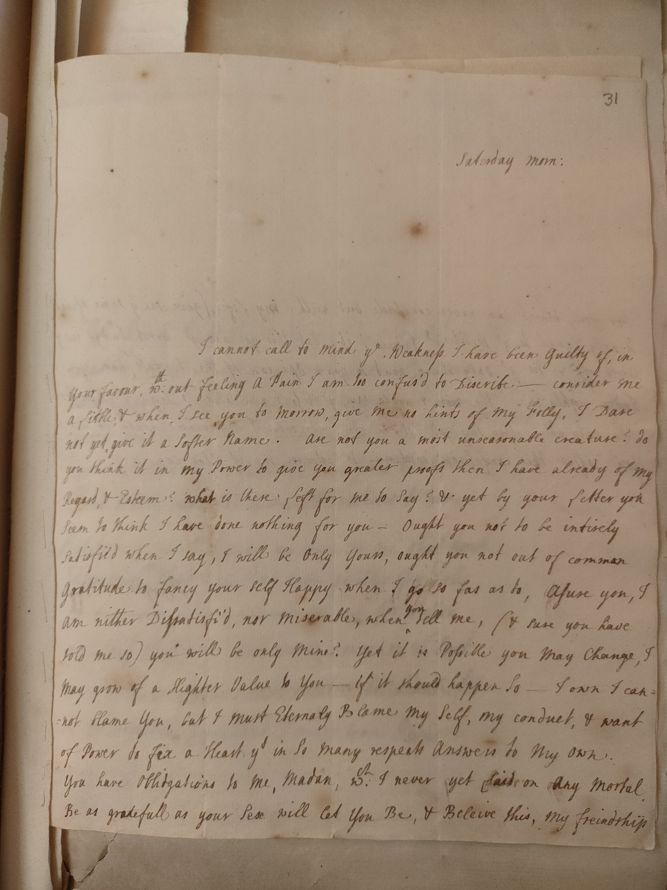 31
Saturday morn:
I cannot call to mind yᵉ Weakness I have been Guilty of, in
Your favour, wᵗʰ:out feeling A Pain I am too confus'd to Discribe. — consider me
a little & when I see you to morrow, give me no hints of My Folly, I Dare
not yet give it a Softer Name. Are not you a most unreasonable creature? do
you think it in my Power to give you greater proofs then I have already of My
Regard, & Esteem? what is there left for me to Say? & yet by your letter you
Seem to think I have done nothing for you — Ought you not to be intirely
Satisfi'd when I say, I will be Only Yours, ought you not out of common
Gratitude to fancy your self Happy when I go so far as to, Assure you, I
am nither Dissatisfi'd, nor Miserable, when you Tell me, (& sure you have
told me so) you will be only Mine? Yet it is Possible you May Change, I
May grow of a Slighter Value to You — If it should happen So — I own I can=
=not blame You, but I must Eternaly Blame My Self, my conduct, & want
of Power to Fix a Heart yᵗ in So many respects Answers to My Own.
You have Obligations to Me, Madan, wᶜʰ: I never yet laid on Any Mortal.
Be as gratefull as your Sex will let You Be, & Beleive this, My freindship